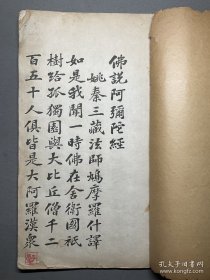 佛說阿彌陀經
姚秦三藏法師鳩摩羅什譯
如是我聞一時佛在舍衛國祇
樹給孤獨園與大比丘僧千二
百五十人俱皆是大阿羅漢衆